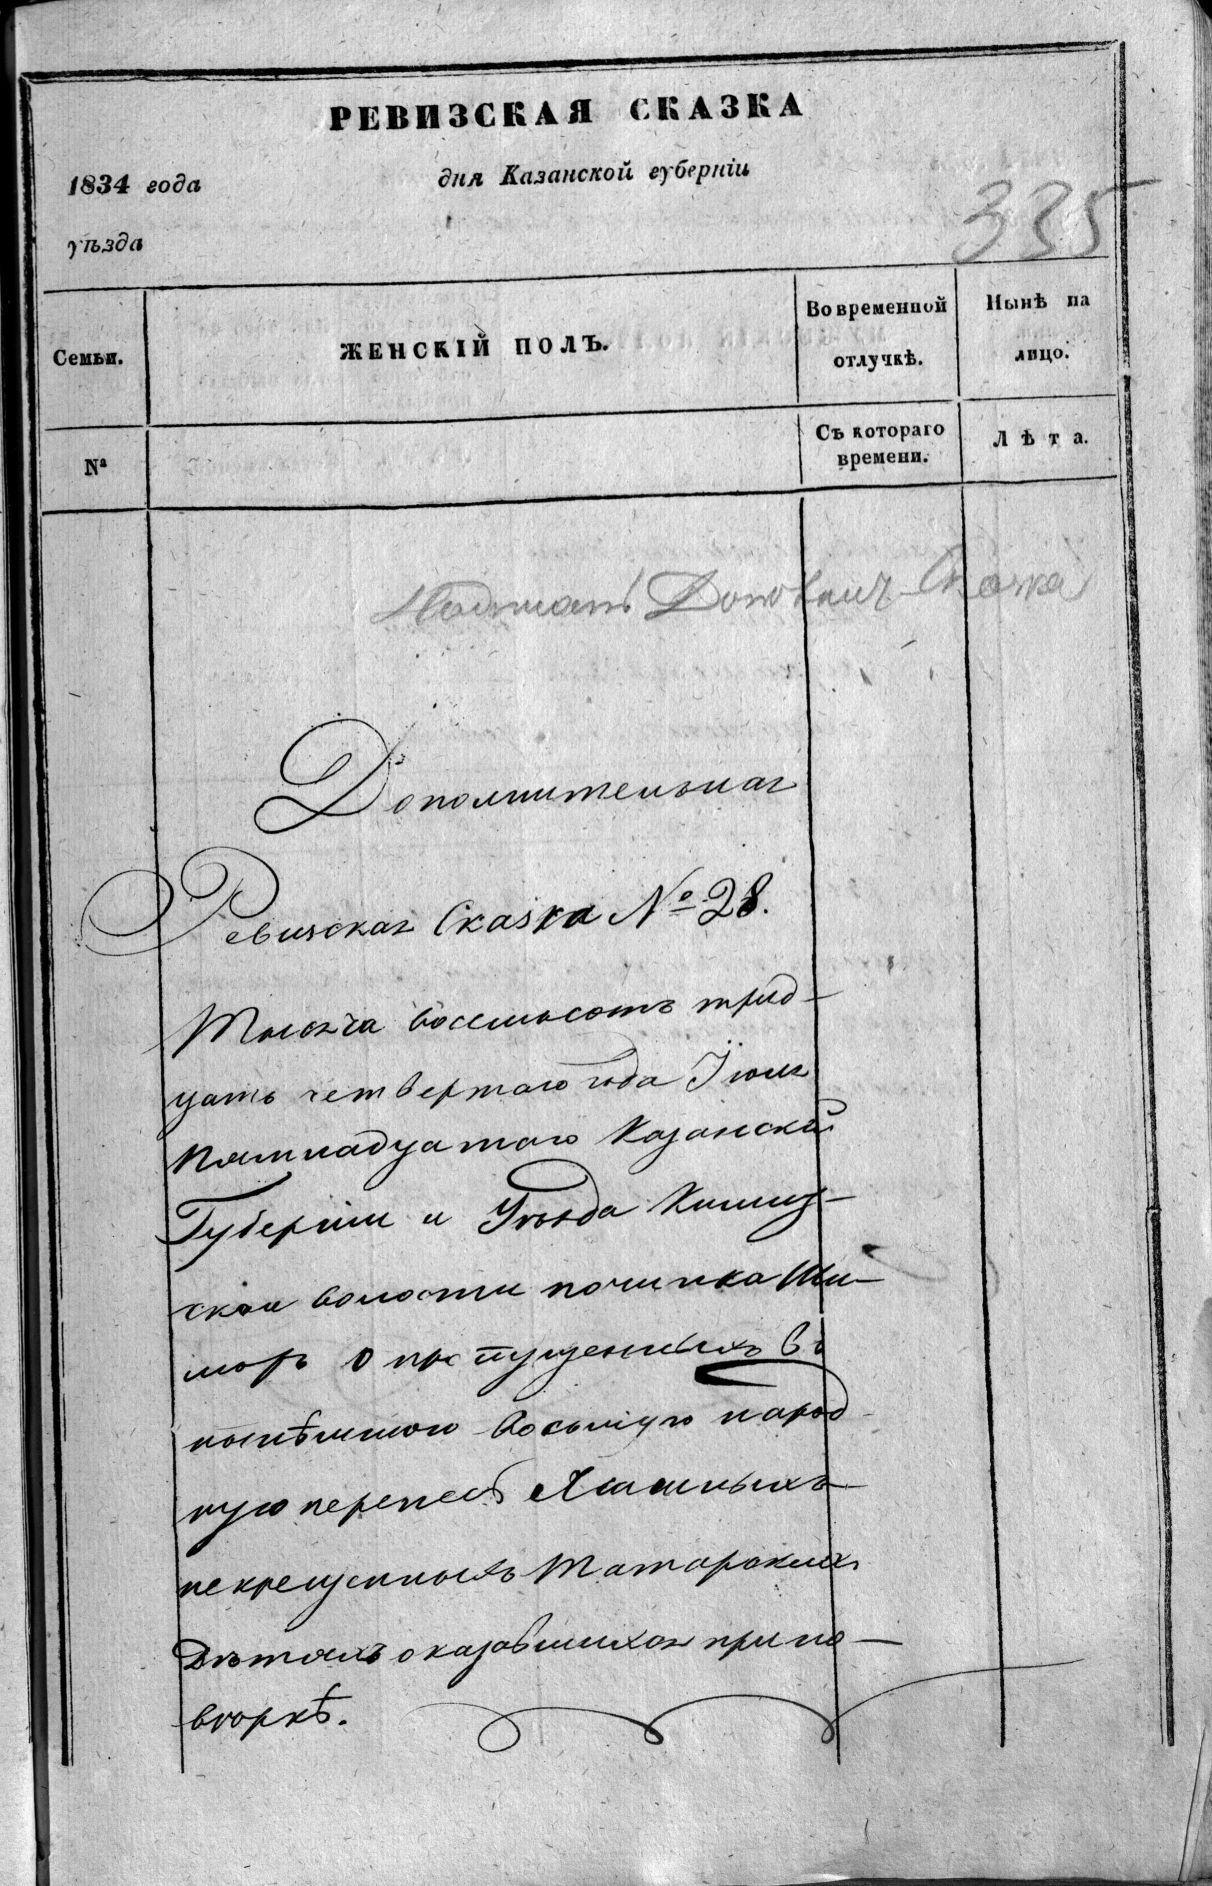 РЕВИЗСКАЯ СКАЗКА
1834 года дня Казанской губерніи
уѣзда
335
Семьи. ЖЕНСКІЙ ПОЛЪ. Во временной отлучкѣ. Нынѣ на лицо.
№ Съ котораго времени. Лѣта.
Дополнительная
Ревизская Сказка № 28.
Тысяча восемьсотъ трид-
цать четвертаго года Іюля
пятнадцатаго Казанской
Губерніи и Уѣзда
ской волости починка Ши-
моръ о пропущенныхъ въ
нынѣшнюю восьмую народ
ную перепись Ясашныхъ
некрещенныхъ Татарскихъ
Дѣтяхъ оказавшихся при по-
вѣркѣ.